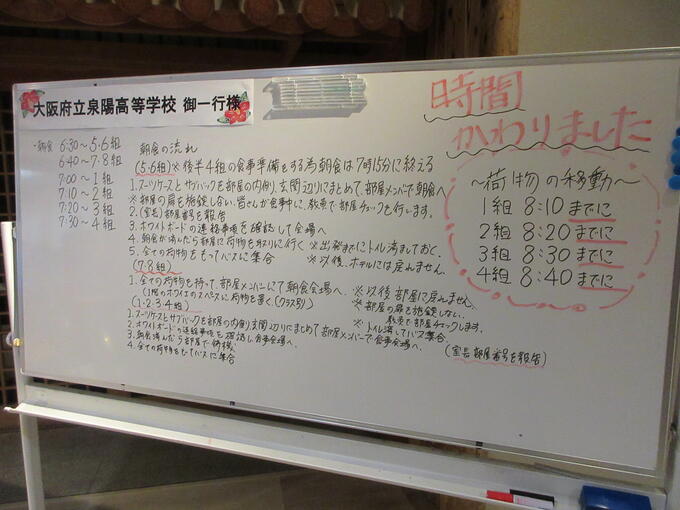 大阪府立泉陽高等学校 御一行様
時間
かわりました
・朝食 6:30～5・6組
6:40～7・8組
7:00～1組
7:10～2組
7:20～3組
7:30～4組
朝食の流れ
(5・6組)※後半4組の食事準備をする為朝食は7時15分に終える
1.スーツケースとサブバックを部屋の内側、玄関辺りにまとめて、部屋メンバーで朝食へ
※部屋の扉を施錠しない。皆さんが食事中に、教員で部屋チェックを行います。
2.(室長)部屋番号を報告
3.ホワイトボードの連絡事項を確認して会場へ
4.朝食が済んだら部屋に荷物を取りに行く ※出発までにトイレ済ましておく。
5.全ての荷物をもってバスに集合 ※以後、ホテルには戻れません。
(7・8組)
1.全ての荷物を持って、部屋メンバーにて朝食会場へ。
(1階のホワイエのスペースに荷物を置く。(クラス別))
※以後部屋に戻れません。
※部屋の扉を施錠しない。
教員で部屋チェックします。
※トイレ済ましてバス集合
(1・2・3・4組)
1.スーツケースとサブバックを部屋の内側、玄関辺りにまとめて部屋メンバーで食事会場へ。
(室長部屋番号を報告)
2.ホワイトボードの連絡事項を確認し食事会場へ。
3.朝食済んだら部屋で待機。
4.全ての荷物をもってバスに集合
～荷物の移動～
1組 8:10までに
2組 8:20までに
3組 8:30までに
4組 8:40までに